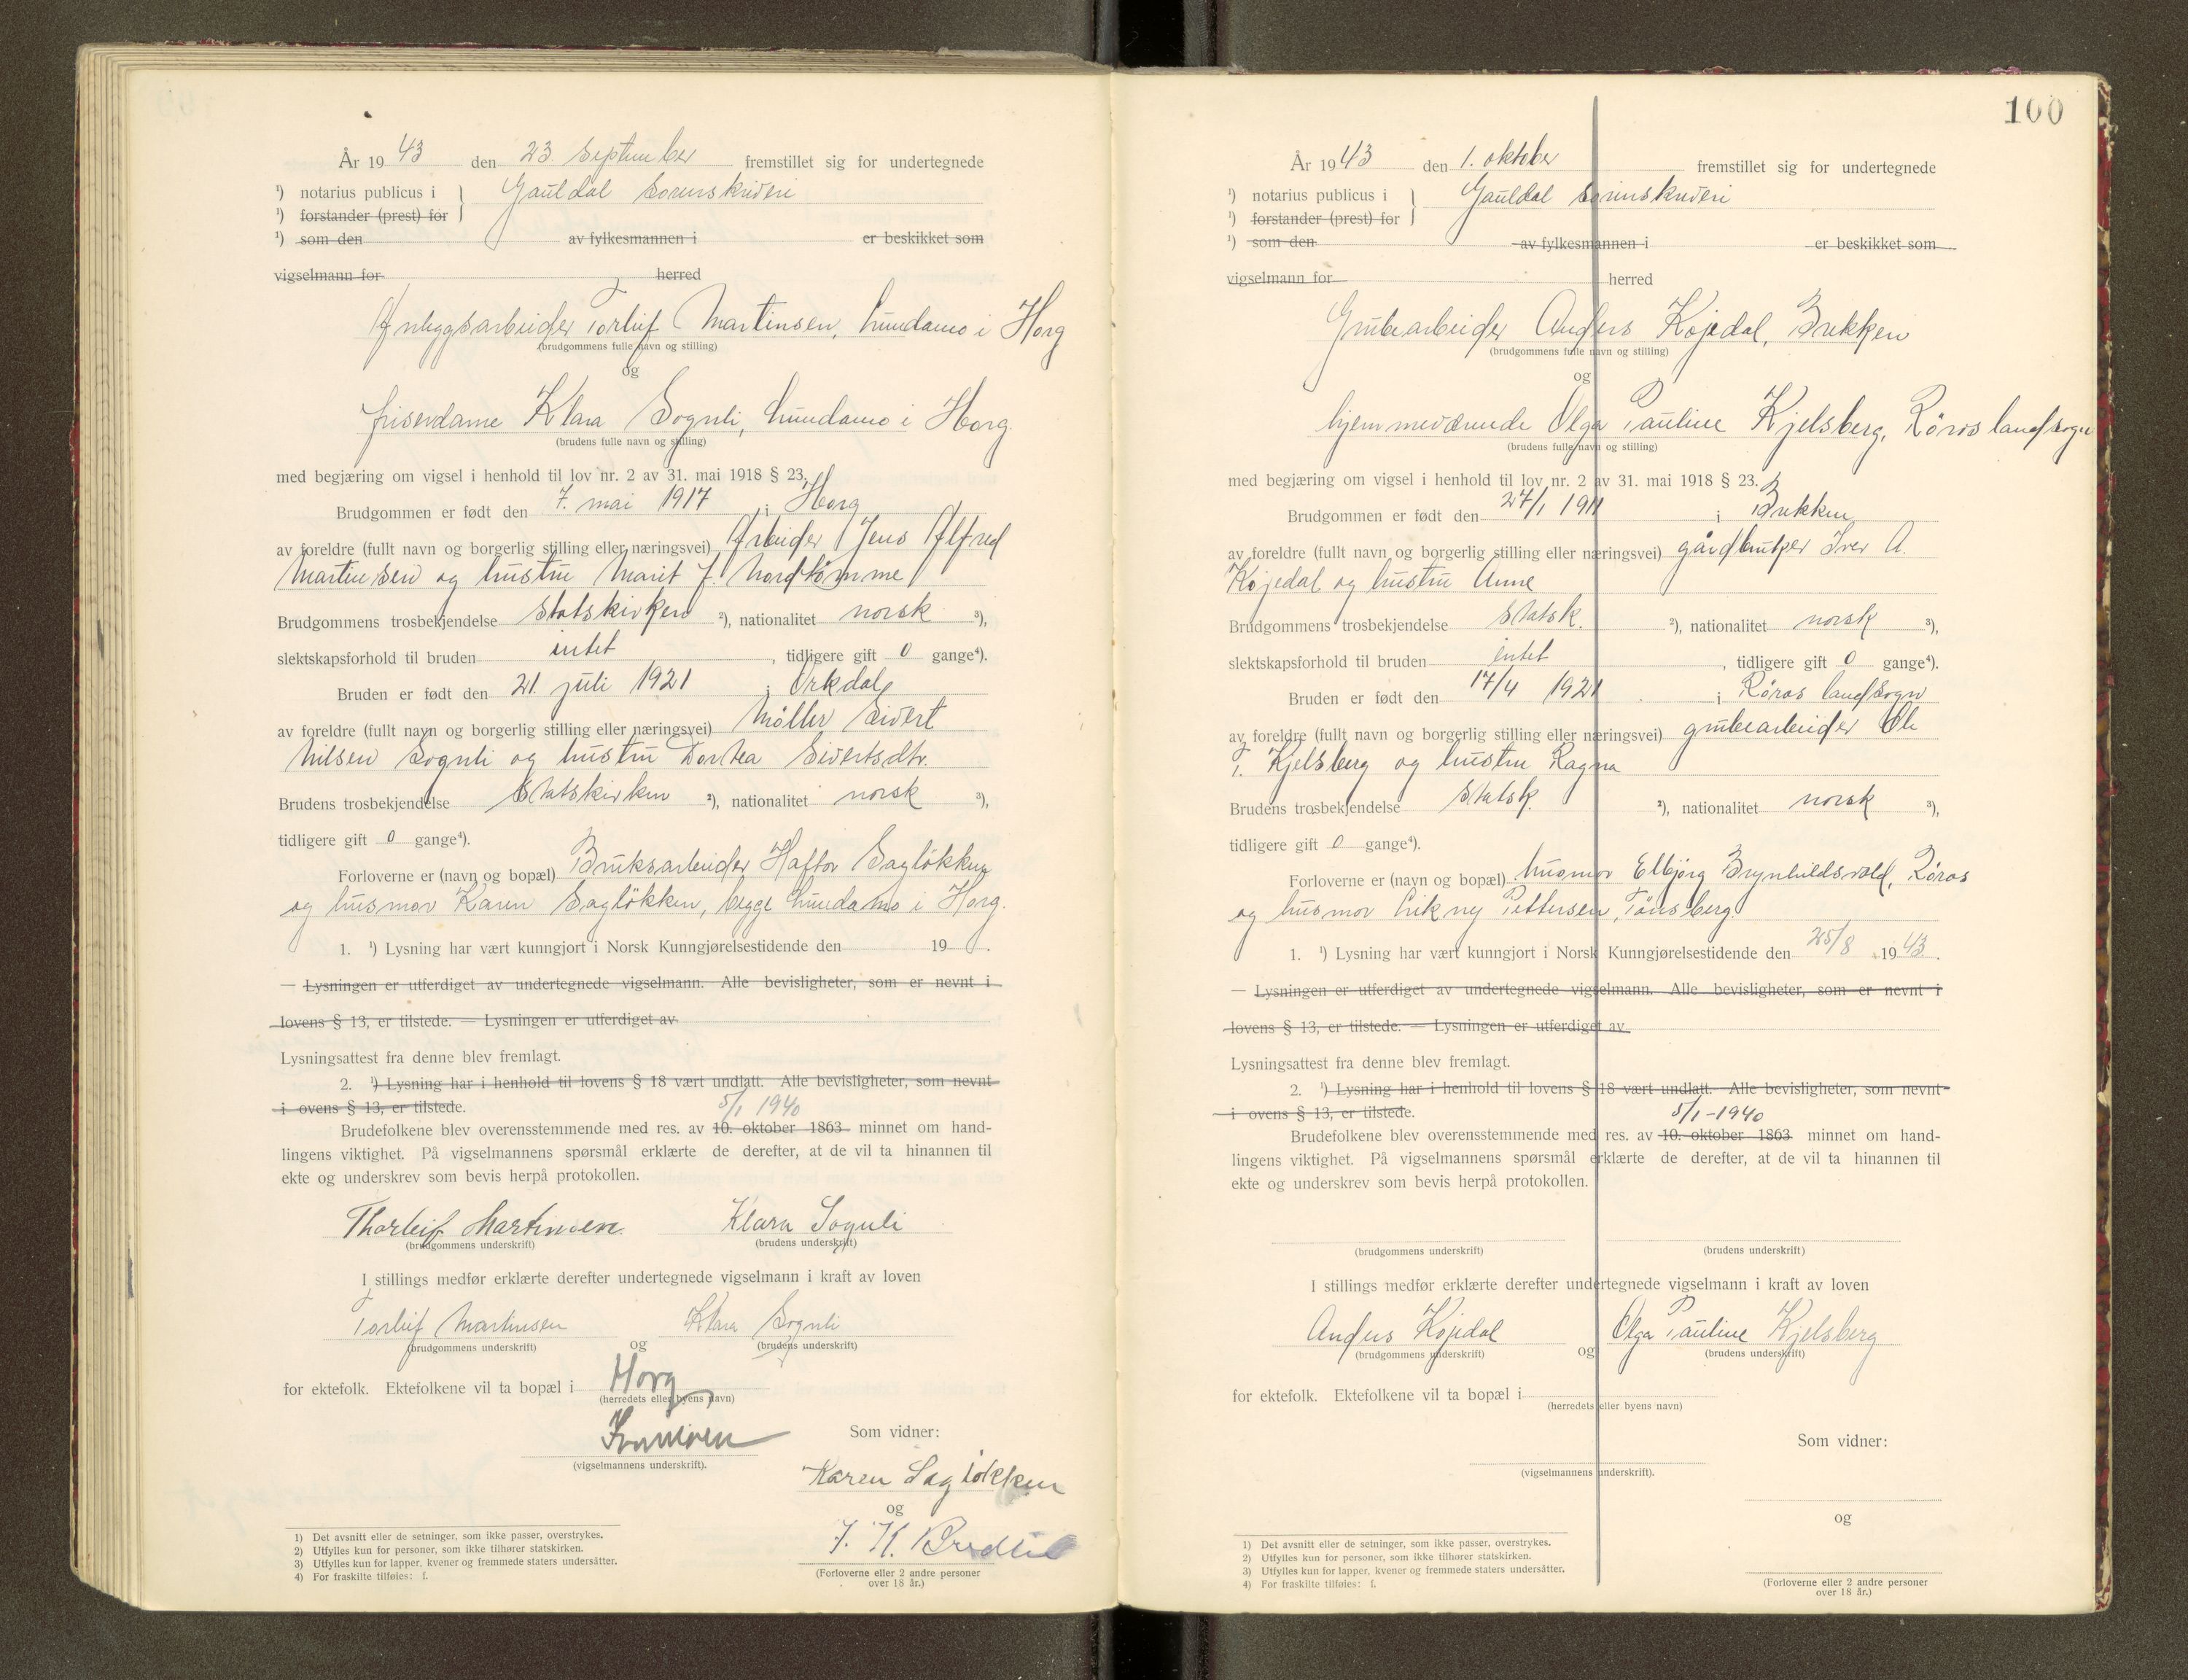 År 1943 den 23. September fremstillet sig for undertegnede
¹) notarius publicus i } Gauldal Sorenskriveri
¹) forstander (prest) for
¹) som den av fylkesmannen i er beskikket som
vigselmann for herred
Anleggsarbeider Torleif Martinsen, Lundamo i Horg
(brudgommens fulle navn og stilling)
og
friserdame Klara Sognli, Lundamo i Horg.
(brudens fulle navn og stilling)
med begjæring om vigsel i henhold til lov nr. 2 av 31. mai 1918 § 23.
Brudgommen er født den 7. mai 1917 i Horg
av foreldre (fullt navn og borgerlig stilling eller næringsvei) Arbeider Jens Alfred
Martinsen og hustru Marit J. Nordtømme
Brudgommens trosbekjendelse Statskirken ²), nationalitet norsk ³),
slektskapsforhold til bruden intet, tidligere gift 0 gange⁴).
Bruden er født den 21. juli 1921 i Orkdal
av foreldre (fullt navn og borgerlig stilling eller næringsvei) Møller Sivert
Nilsen Sognli og hustru Dortea Sivertsdtr.
Brudens trosbekjendelse Statskirken ²), nationalitet norsk ³),
tidligere gift 0 gange⁴).
Forloverne er (navn og bopæl) Bruksarbeider Haftor Sagløkken
og husmor Karen Sagløkken, begge Lundamo i Horg.
1. ¹) Lysning har vært kunngjort i Norsk Kunngjørelsestidende den 19 .
— Lysningen er utferdiget av undertegnede vigselmann. Alle bevisligheter, som er nevnt i
lovens § 13, er tilstede. — Lysningen er utferdiget av
Lysningsattest fra denne blev fremlagt.
2. ¹) Lysning har i henhold til lovens § 18 vært undlatt. Alle bevisligheter, som nevnt
i ovens § 13, er tilstede.
5/1 1940
Brudefolkene blev overensstemmende med res. av 10. oktober 1863 minnet om hand-
lingens viktighet. På vigselmannens spørsmål erklærte de derefter, at de vil ta hinannen til
ekte og underskrev som bevis herpå protokollen.
Thorleif Martinsen. Klara Sognli
(brudgommens underskrift) (brudens underskrift)
I stillings medfør erklærte derefter undertegnede vigselmann i kraft av loven
Torleif Martinsen og Klara Sognli
(brudgommens underskrift) (brudens underskrift)
for ektefolk. Ektefolkene vil ta bopæl i Horg
(herredets eller byens navn)
(vigselmannens underskrift).
Som vidner:
Karen Sagløkken
og
J. K.
(Forloverne eller 2 andre personer
over 18 år.)
1) Det avsnitt eller de setninger, som ikke passer, overstrykes.
2) Utfylles kun for personer, som ikke tilhører statskirken.
3) Utfylles kun for lapper, kvener og fremmede staters undersåtter.
4) For fraskilte tilføies: f.
100
År 1943 den 1. oktober fremstillet sig for undertegnede
¹) notarius publicus i } Gauldal Sorenskriveri
¹) forstander (prest) for
¹) som den av fylkesmannen i er beskikket som
vigselmann for herred
Grubearbeider Anders Kojedal, Brekken
(brudgommens fulle navn og stilling)
og
hjemmeværende Olga Pauline Kjelsberg, Røros landsogn
(brudens fulle navn og stilling)
med begjæring om vigsel i henhold til lov nr. 2 av 31. mai 1918 § 23.
Brudgommen er født den 27/1 1911 i Brekken
av foreldre (fullt navn og borgerlig stilling eller næringsvei) gårdbruker Iver A.
Kojedal og hustru Anne
Brudgommens trosbekjendelse Statsk. ²), nationalitet norsk ³),
slektskapsforhold til bruden intet, tidligere gift 0 gange⁴).
Bruden er født den 17/4 1921 i Røros landsogn
av foreldre (fullt navn og borgerlig stilling eller næringsvei) grubearbeider Ole
T. Kjelsberg og hustru Ragna
Brudens trosbekjendelse Statsk. ²), nationalitet norsk ³),
tidligere gift 0 gange⁴).
Forloverne er (navn og bopæl) husmor Elbjørg Brynhildsvold, Røros
og husmor Pettersen, Tønsberg.
1. ¹) Lysning har vært kunngjort i Norsk Kunngjørelsestidende den 25/8 1943.
— Lysningen er utferdiget av undertegnede vigselmann. Alle bevisligheter, som er nevnt i
lovens § 13, er tilstede. — Lysningen er utferdiget av
Lysningsattest fra denne blev fremlagt.
2. ¹) Lysning har i henhold til lovens § 18 vært undlatt. Alle bevisligheter, som nevnt
i ovens § 13, er tilstede.
5/1-1940
Brudefolkene blev overensstemmende med res. av 10. oktober 1863 minnet om hand-
lingens viktighet. På vigselmannens spørsmål erklærte de derefter, at de vil ta hinannen til
ekte og underskrev som bevis herpå protokollen.
(brudgommens underskrift) (brudens underskrift)
I stillings medfør erklærte derefter undertegnede vigselmann i kraft av loven
Anders Kojedal og Olga Pauline Kjelsberg
(brudgommens underskrift) (brudens underskrift)
for ektefolk. Ektefolkene vil ta bopæl i
(herredets eller byens navn)
Som vidner:
(vigselmannens underskrift).
og
(Forloverne eller 2 andre personer
over 18 år.)
1) Det avsnitt eller de setninger, som ikke passer, overstrykes.
2) Utfylles kun for personer, som ikke tilhører statskirken.
3) Utfylles kun for lapper, kvener og fremmede staters undersåtter.
4) For fraskilte tilføies: f.